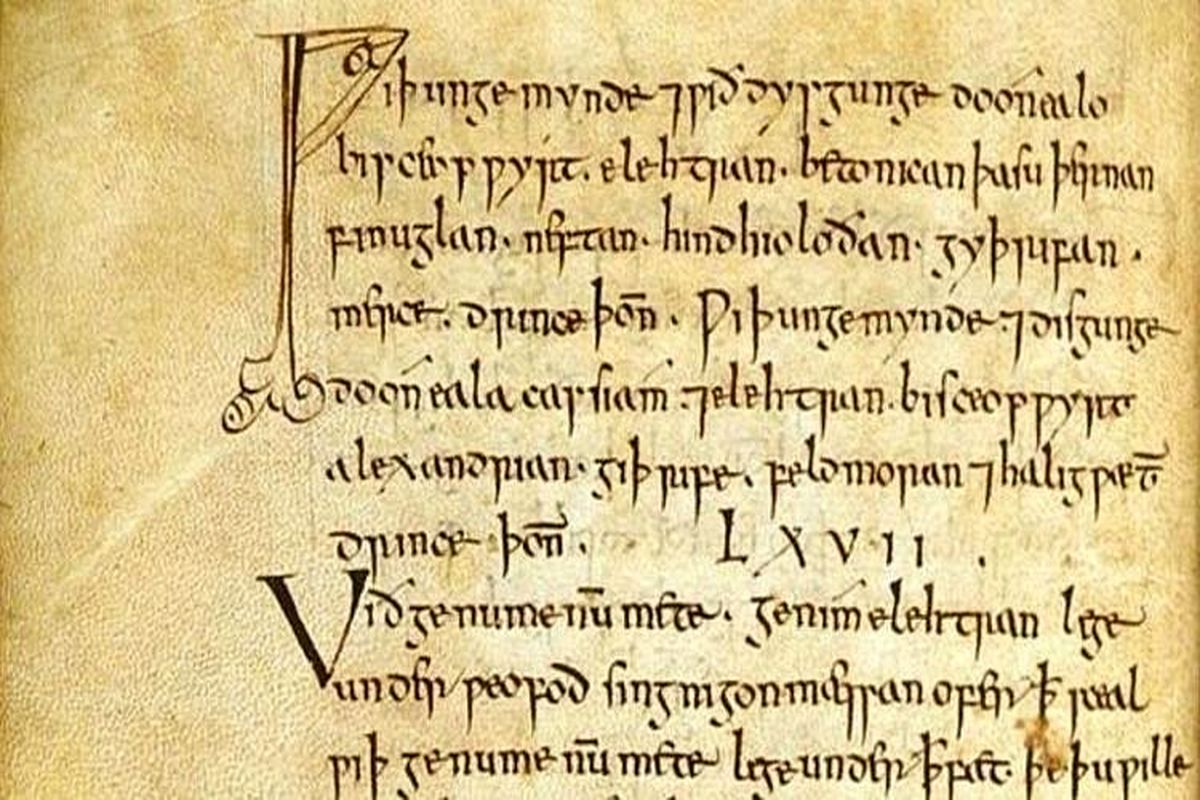 Ƿiþ ungemynde ⁊ ƿið dysgunge do on ealo
biscepƿyrt. elehtran. betonican þa suþernan
finuglan. neftan. hindhioloðan. gyþrifan.
merice. drince þon̄. Ƿiþ ungemynde ⁊ disgunge
do on eala cassiam ⁊ elehtran. bisceopƿyrt
alexandrian. giþrife. feldmoran ⁊ halig ƿæt̄
drince þon̄. LXVII.
Við genumenū mete. genim elehtran lege
under ƿeofod sing nigon mæssan ofer ꝥ sceal
ƿiþ genumenū mete lege under ꝥ fæt þe þu ƿille